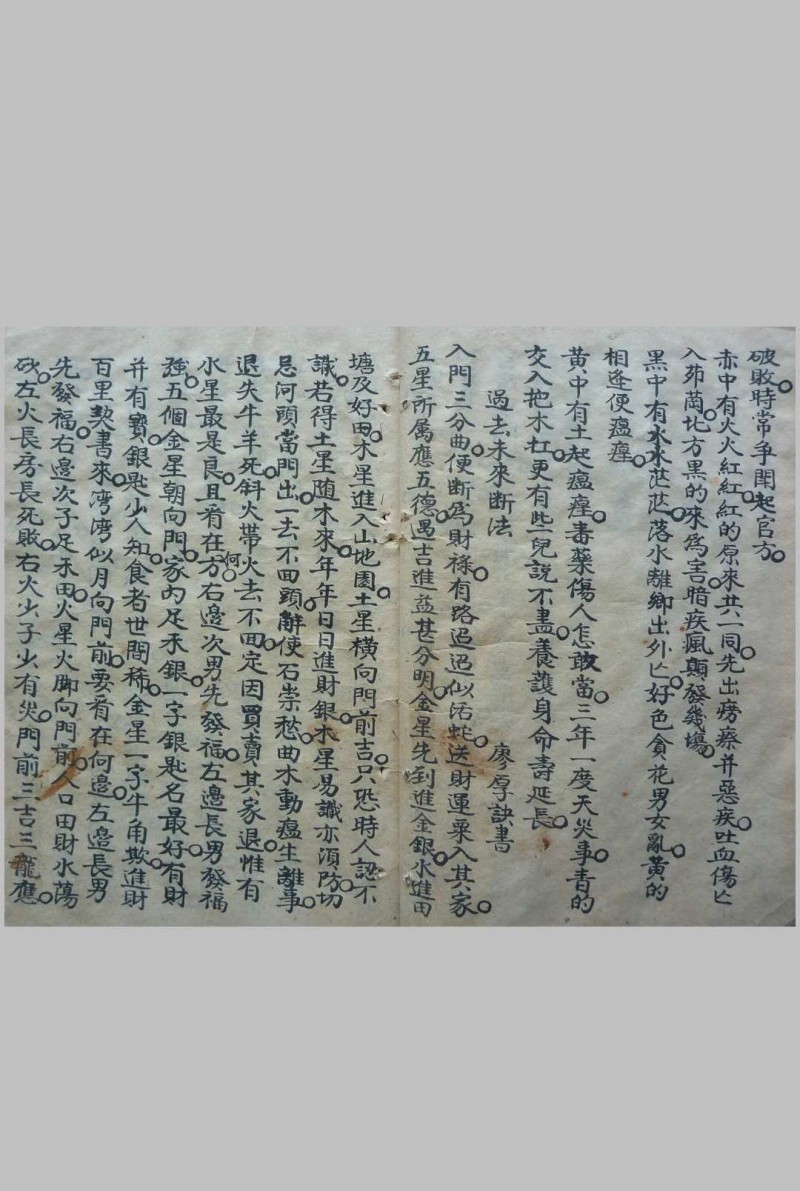 破敗時常爭閗起官方。
赤中有火火紅紅紅的原來共一同。先出癆瘵并惡疾。吐血傷亡
入茆茼。北方黑的來為害。暗疾瘋顛發幾塲。
黑中有水水茫茫。落水離鄉出外亡。好色貪花男女亂。黃的
相逢便瘟㾮。
黃中有土起瘟㾮。毒藥傷人怎敢當。三年一度天災事。青的
交入把木扛。更有些兒說不盡。養護身命壽延長。
過去未來断法 廖厚訣書
入門三分曲。便断為財祿。有路迢迢似活蛇。送財運粟入其家。
五星所属應五德。遇吉進益甚分明。金星先到進金銀。水進田
塘及好田。木星進入山地園。土星橫向門前吉。只恐時人認不
識。若得土星随木來。年年日日進財銀。水星易識亦須防。切
忌河頭當門出。一去不回頭。觧便石崇愁。曲水動瘟生離事。
退失牛羊死。斜火帶火去不回。定因買賣其家退。惟有
水星最是良。且看在何方。右邊次男先發福。左邊長男發福
強。五個金星朝向門。家內足禾銀。一字銀匙名最好。有財
并有寶。銀匙少人知。食者世間稀。金星一字牛角欺。進財
百里契書來。湾湾似月向門前。要看在何邊。左邊長男
先發福。右邊次子足禾田。火星火脚向門前。人口田財水蕩
砍。左火長房長死敗。右火少子少有災。門前三吉三龍應。